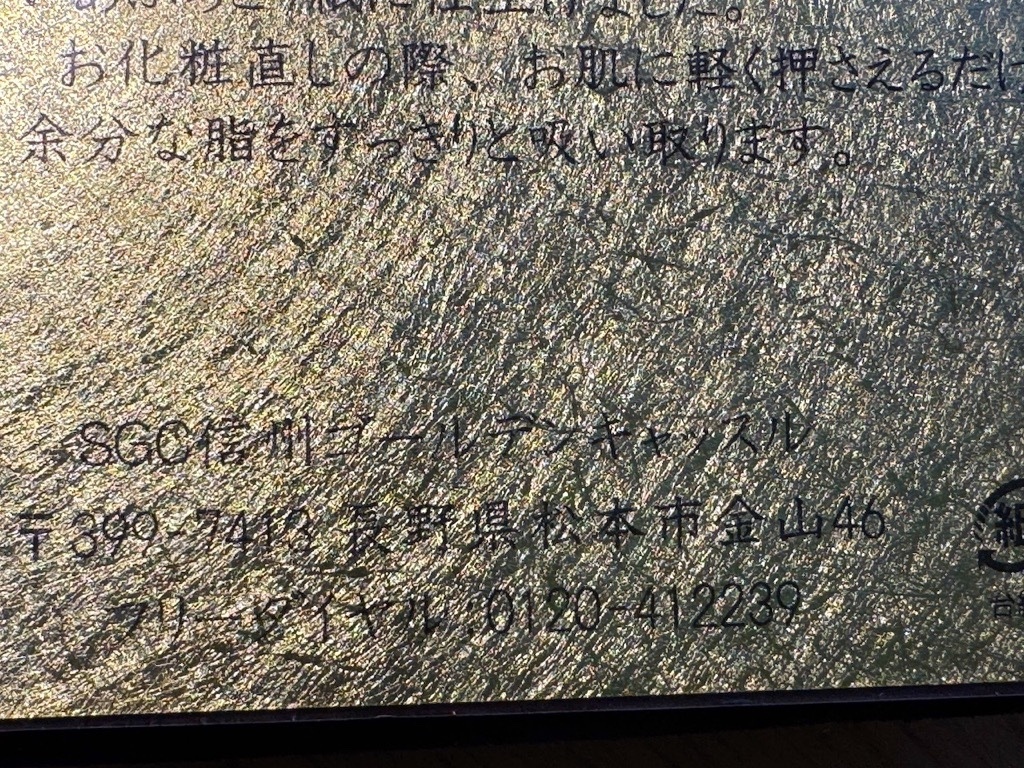 紙に仕上げました。
お化粧直しの際、お肌に軽く押さえるだけ
余分な脂をすっきりと吸い取ります。
SGC信州ゴールデンキャッスル
〒399-7413 長野県松本市金山46
フリーダイヤル 0120-412239
紙
台紙